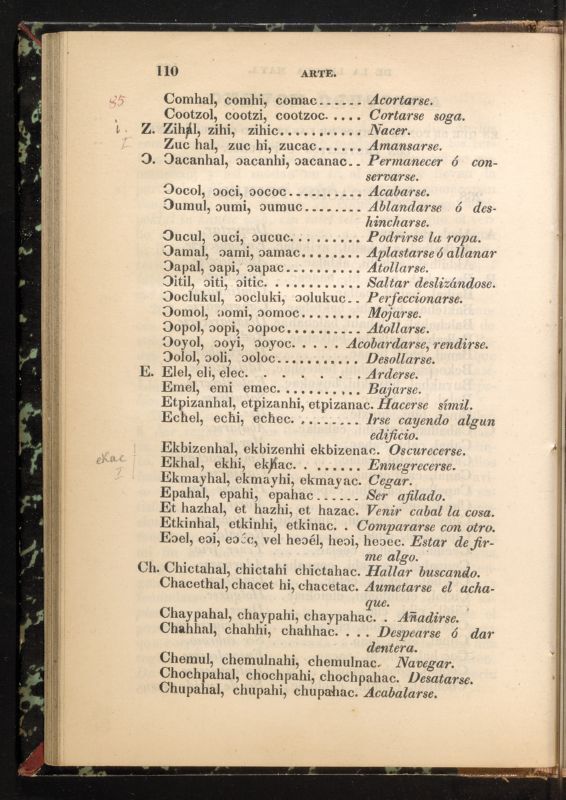 110 ARTE.
85
Comhal, comhi, comac...... Acortarse.
Cootzol, cootzi, cootzoc...... Cortarse soga.
i. Z. Zihal, zihi, zihic........... Nacer.
I Zuc hal, zuc hi, zucac...... Amansarse.
Ɔ. Ɔacanhal, ɔacanhi, ɔacanac.. Permanecer ó con-
servarse.
Ɔocol, ɔoci, ɔococ.......... Acabarse.
Ɔumul, ɔumi, ɔumuc........ Ablandarse ó des-
hincharse.
Ɔucul, ɔuci, ɔucuc.......... Podrirse la ropa.
Ɔamal, ɔami, ɔamac........ Aplastarse ó allanar
Ɔapal, ɔapi, ɔapac.......... Atollarse.
Ɔitil, ɔiti, ɔitic. ........... Saltar deslizándose.
Ɔoclukul, ɔocluki, ɔolukuc.. Perfeccionarse.
Ɔomol, ɔomi, ɔomoc........ Mojarse.
Ɔopol, ɔopi, ɔopoc......... Atollarse.
Ɔoyol, ɔoyi, ɔoyoc. .... Acobardarse, rendirse.
Ɔolol, ɔoli, ɔoloc........... Desollarse.
E. Elel, eli, elec. . . . . . . . . Arderse.
Emel, emi emec. .......... Bajarse.
Etpizanhal, etpizanhi, etpizanac. Hacerse símil.
Echel, echi, echec. ........ Irse cayendo algun
edificio.
Ekbizenhal, ekbizenhi ekbizenac. Oscurecerse.
ekac Ekhal, ekhi, ekhac. . ...... Ennegrecerse.
I Ekmayhal, ekmayhi, ekmayac. Cegar.
Epahal, epahi, epahac...... Ser afilado.
Et hazhal, et hazhi, et hazac. Venir cabal la cosa.
Etkinhal, etkinhi, etkinac. . Compararse con otro.
Eɔel, eɔi, eɔéc, vel heɔél, heɔi, heɔec. Estar de fir-
me algo.
Ch. Chictahal, chictahi chictahac. Hallar buscando.
Chacethal, chacet hi, chacetac. Aumetarse el acha-
que.
Chaypahal, chaypahi, chaypahac. . Añadirse.
Chahhal, chahhi, chahhac. . . . Despearse ó dar
dentera.
Chemul, chemulnahi, chemulnac. Navegar.
Chochpahal, chochpahi, chochpahac. Desatarse.
Chupahal, chupahi, chupahac. Acabalarse.